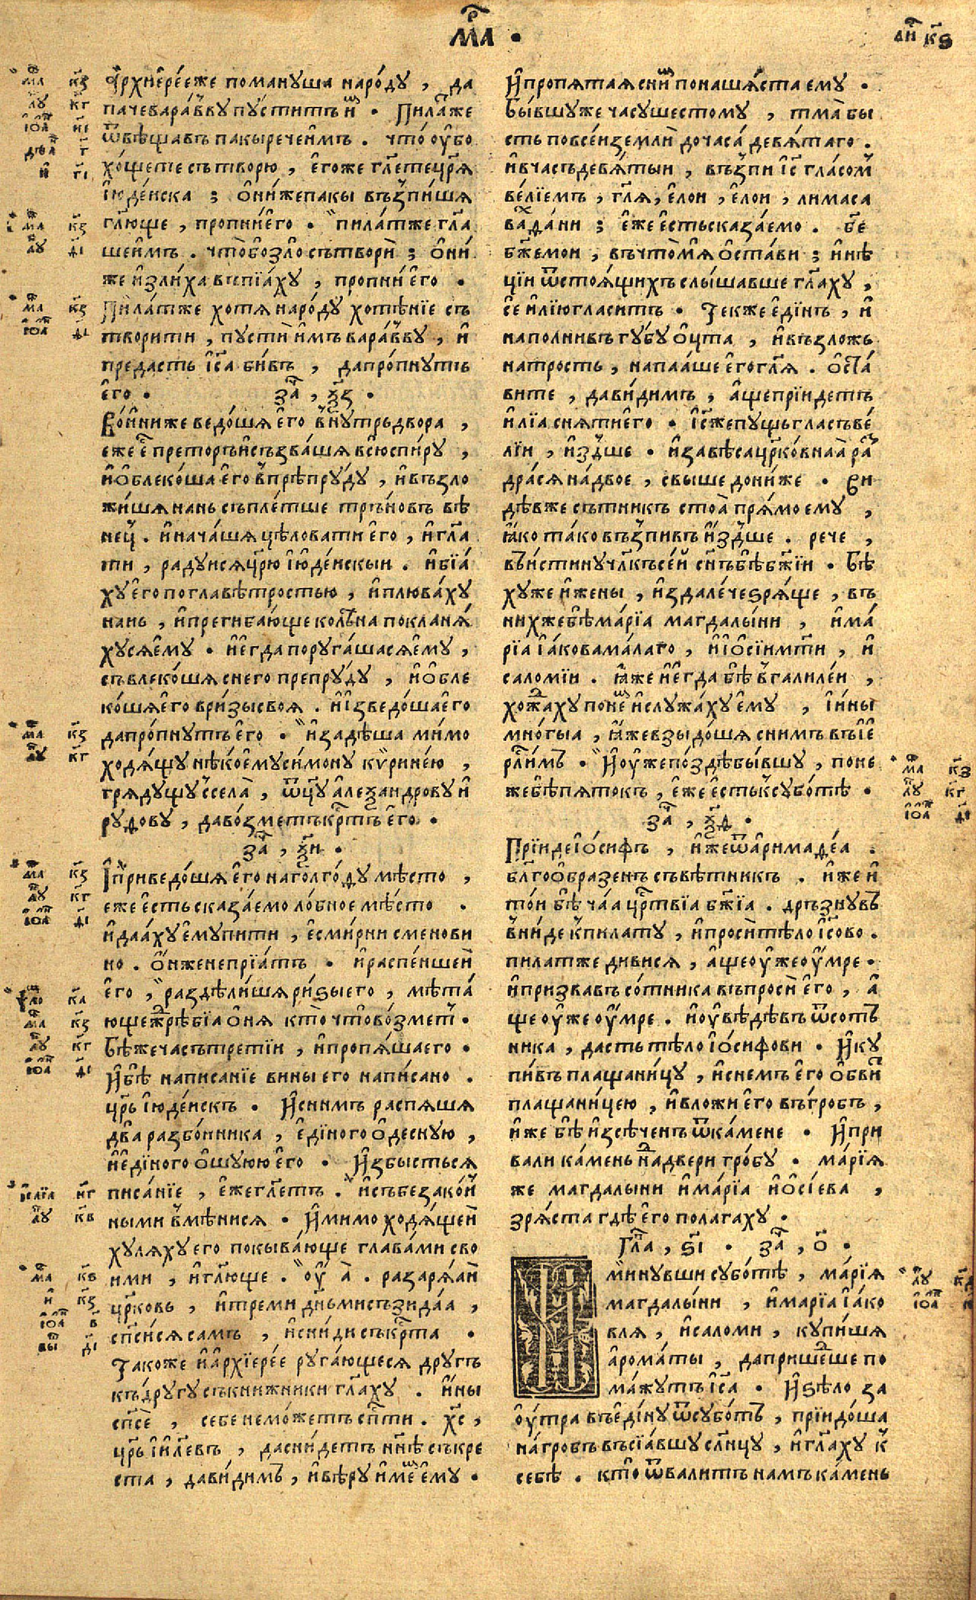 Мр҃А ·
лй к҃ѕ
А҆рхиере́еже помануша наро́ду , да
паче вара́вву пу́стит и҆мъ · Пила́же
ѿвѣщавъ пакы рече и҆мъ . что̀ оу҆бо
хо́щете сътворю , е҆гоже гл҃ете цр҃я
і҆юде́иска ; о҆ни́же пакы възпи́шя
гл҃юще , пропни́ е҆го · пила́тже гл҃а
ше и҆мъ . что̀ бо зло̀ сътвори̑ ; о҆ни́
же и҆злиха въпїа́ху , пропни́ е҆го ·
Пила́тже хотя наро́ду хотѣ́нїе съ
творити , пусти̑ и҆мъ вара́вву , и҆
предасть і҆с҃а би́въ , да про́пнутъ
е҆го · за҃ , ѯ҃з ·
Во́иниже ведо́шя е҆го вну́трь двора ,
еже е҆ преторъ и҆ съзва́шя всю спи́ру ,
и҆ о҆блекоша е҆го въ прѣпру́ду , и҆ възло
жи́шя нань съпле́тше тръ́новъ вѣ
не́ц . и҆ нача́шя цѣловати е҆го , и҆ гл҃а
ти , радуися цр҃ю і҆юде́искыи . и҆ бїа́
ху е҆го по главѣ тростью , и҆ плюва́ху
нань , и҆ прегиба́юще колѣ́на покланя́
хуся е҆му · и҆ е҆гда поруга́шася е҆му ,
съвлеко́шя с него препру́ду , и҆ о҆бле
ко́шя е҆го в ри́зы своя . и҆ і҆зведо́ша е҆го
да про́пнутъ е҆го · и҆ задѣ́ша ми́мо
ходя́щу нѣ́коему си́мону кѷрине́ю ,
гряду́щу съ села̀ , ѿц҃у а҆леѯандрову и҆
ру́фову , да во́зметъ кр҃тъ е҆го ·
за҃ , ѯ҃и ·
І҆ приведо́шя е҆го на го́лгофу мѣ́сто ,
еже е҆сть сказа́емо ло́бное мѣ́сто .
и҆ даа́ху е҆му пити , е҆смирни смено ви
но . о҆н же не прїа́тъ · и҆ распе́ншеи
е҆го , раздѣли́шя ри́зы его , мѣта́
юще жре́бїа о҆ ня кто̀ что̀ во́змет ·
Бѣ́же часъ тре́тїи , и҆ пропя́ша его ·
И҆ бѣ̀ написа́нїе вины его написано .
цр҃ь і҆юде́искъ · И҆ с нимъ распяшя
два разбо́иника , е҆ди́ного о҆десну́ю ,
и҆ е҆ди́ного о҆шуюю е҆го · И҆ збы́стъся
писа́нїе , е҆же гл҃етъ . и҆ съ безако́н
ными вмѣни́ся · И҆ мимо ходя́щеи
хуля́ху его покыва́юще глава́ми сво
ими , и҆ гл҃юще . оу҆а̀ . разаря́аи
цр҃ковь , и҆ треми́ дн҃ьми съзида́а ,
сп҃си́ся самъ , и҆ сни́ди съ кр҃та ·
Такоже и҆ а҆рхїере́е руга́ющеся другъ
къ другу съ книжники гл҃аху . и҆ны
сп҃сѐ , себе не мо́жетъ сп҃сти . хс҃ ,
цр҃ь і҆и҃левъ , да сни́детъ нн҃ѣ съ кре
ста , да ви́димъ , и҆ вѣ́ру и҆мемъ е҆му ·
И҆ пропя́тая с ни́м поноша́ста ему ·
Бы́вшу же часу ше́стому , тма̀ бы
сть по всеи́ земли́ до часа̀ девя́таго .
и҆ в часъ девя́тыи , възпи і҆с҃ гла́сом
ве́лїемъ , гл҃я , е҆лои , е҆лои , лима са
вахѳа́ни ; е҆же е҆сть сказа́емо . бж҃е
бж҃е мои , въ что̀ мя о҆стави ; и҆ нѣ
цїи ѿ стоя́щихъ слы́шавше гл҃аху ,
се и҆лїю гласитъ · Текже е҆ди́нъ , и҆
напо́лнивъ гу́бу о҆цта , и҆ възложь
на трость , напаа́ше е҆го гл҃я . о҆ста́
вите , да ви́димъ , а҆ще прїи́детъ
и҆лїа сня́ти е҆го · і҆с҃ же пущь гласъ ве́
лїи , и҆́здше · и҆ завѣса цр҃ко́внаа ра
дра́ся на́двое , свыше до ни́же · Ви
дѣ́вже сътникъ стоа̀ пря́мо ему ,
я҆ко та́ко възпивъ и҆́здше . рече ,
въи́стину чл҃къ се́й сн҃ъ бѣ̀ бж҃їи · Бѣ̀
ху же и҆ жены , и҆здале́че зря́ще , въ
нихже бѣ̀ ма́рїа магдалы́ни , и҆ ма́
рїа і҆а́кова ма́лаго , и҆ і҆о҆сїи мт҃и , и҆
саломїи . я҆́же и҆ е҆гда бѣ̀ въ галиле́и ,
хожа́ху по не́мъ и҆ служа́ху е҆му , и҆ ины
мно́гыа , я҆́же взыдо́шя с ни́мъ въ і҆е
рл҃имъ · И҆ оу҆же по́здѣ бы́вшу , поне
же бѣ̀ пято́къ , е҆же е҆сть к субо́тѣ ·
за҃ , ѯ҃ѳ ·
Прїи́де і҆о́сифъ , и҆́же ѿ а҆римаѳе́а .
бл҃гоо҆бразенъ съвѣ́тникъ . и҆же и҆
то́и бѣ̀ ча́а цр҃твїа бж҃їа . дръзну́въ
вни́де к пила́ту , и҆ проси тѣ́ло і҆с҃ово .
пила́тже диви́ся , а҆ще оу҆же оу҆́мре ·
и҆ призва́въ со́тника въпроси̑ е҆го , а҆
ще оу҆же оу҆́мре . и҆ оу҆вѣ́дѣвъ ѿ сотъ
ника , дасть тѣ́ло і҆о́сифови · И҆ ку
пи́въ плащани́цу , и҆ сне́мъ е҆го о҆бви́т
плащани́цею , и҆ вложи е҆го въ гробъ ,
и҆же бѣ̀ и҆зсѣ́ченъ ѿ ка́мене · И҆ при
вали ка́мень на две́ри гро́бу · ма́рїя
же магдалы́ни и҆ ма́рїа и҆о҆сі́ева ,
зря́ста гдѣ̀ е҆го полага́ху ·
Гл҃а , ѕ҃і · за҃ , о҃ ·
Минувши субо́тѣ , ма́рїя
магдалы́ни , и҆ ма́рїа і҆а́ко
вля , и҆ саломи , купи́шя
а҆рома́ты , да прише́дше по
ма́жутъ і҆с҃а · И҆ зѣло за
оу҆тра въ е҆ди́ну ѿ субо́тъ , прїидо́ша
на гробъ въсїа́вшу сл҃нцу , и҆ гл҃аху к
себѣ̀ . кто̀ ѿвали́тъ намъ ка́мень